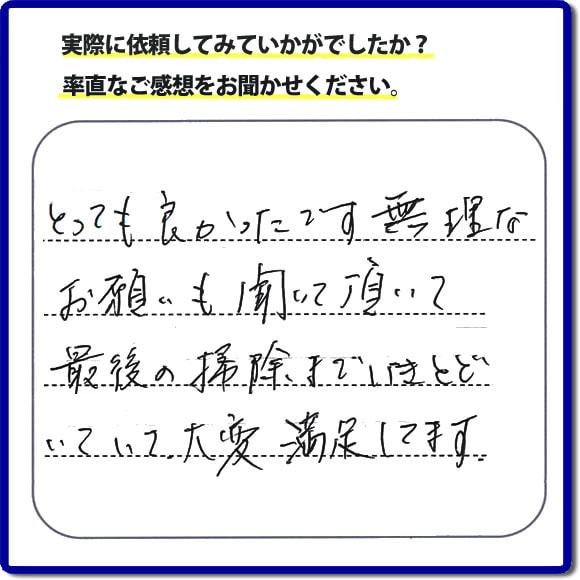 実際に依頼してみていかがでしたか？
率直なご感想をお聞かせください。
とっても良かったです無理な
お願いも聞いて頂いて
最後の掃除までいきとど
いていて、大変満足してます。